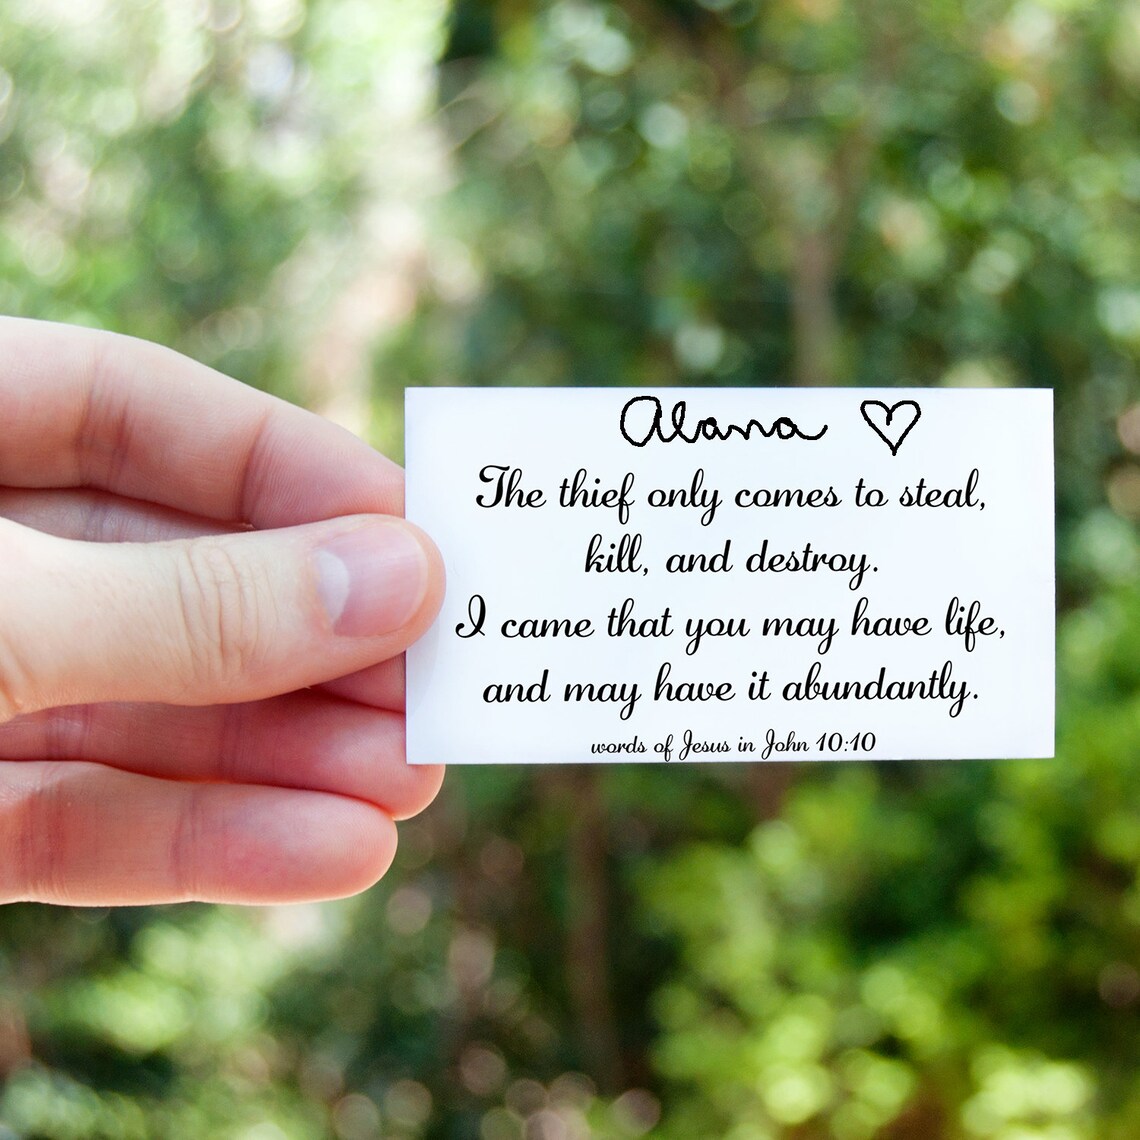 Alana ♡
The thief only comes to steal,
kill, and destroy.
I came that you may have life,
and may have it abundantly.
words of Jesus in John 10:10